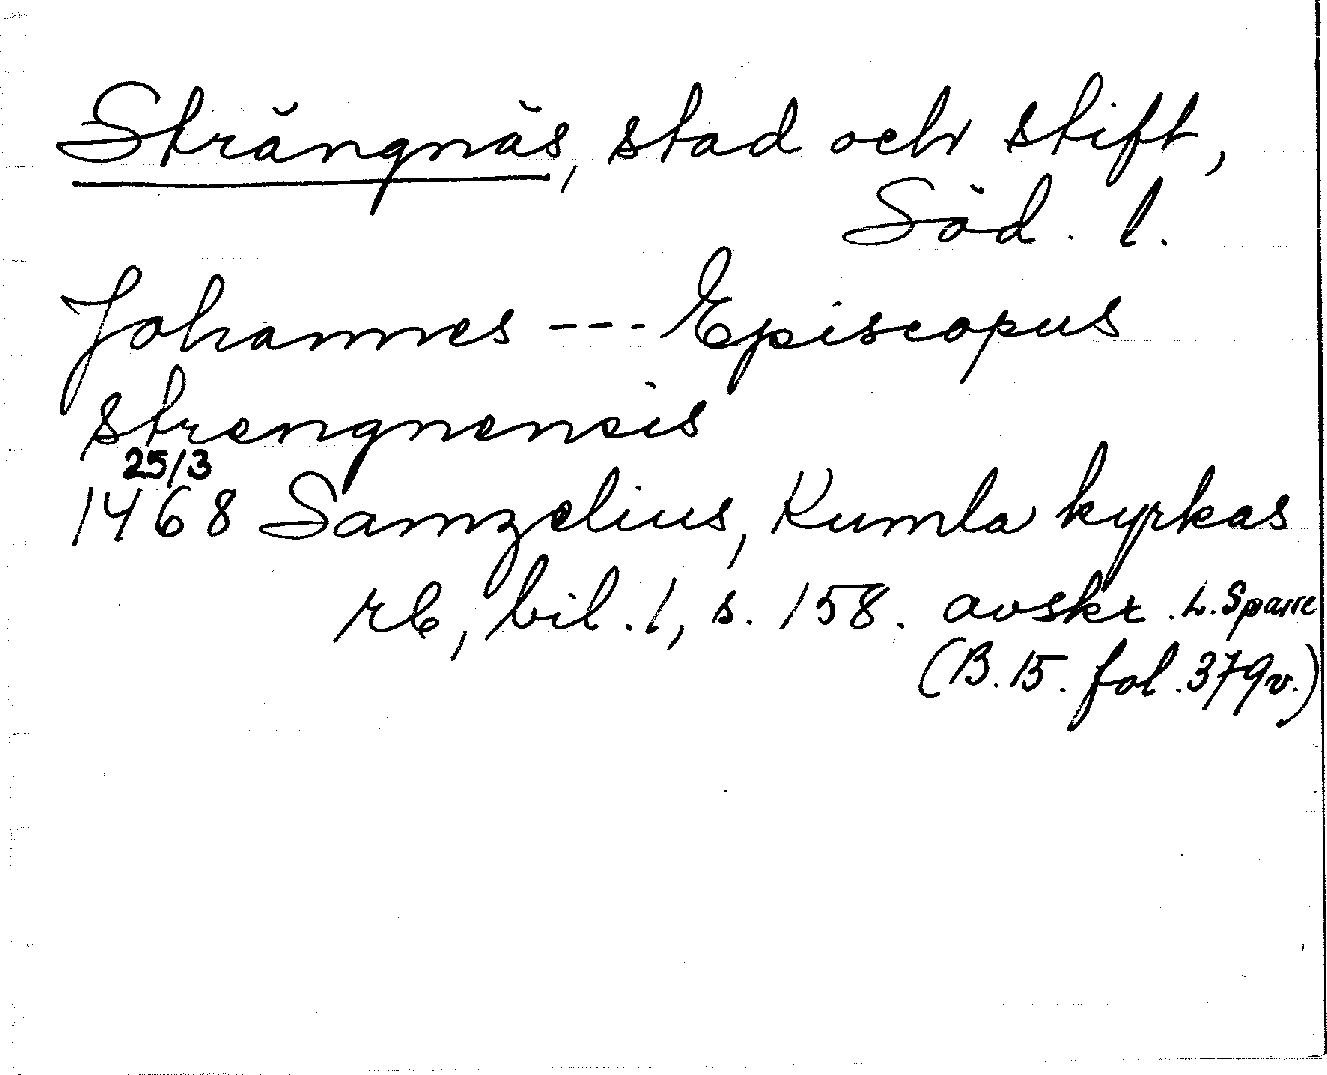 Strängnäs, stad och stift,
Söd. l.
Johannes --- Episcopus
strengnensis
25/3
1468 Samzelius, Kumla kyrkas
rb, bil. 1, s. 158. avskr. L. Sparre
(B. 15. fol. 379v.)